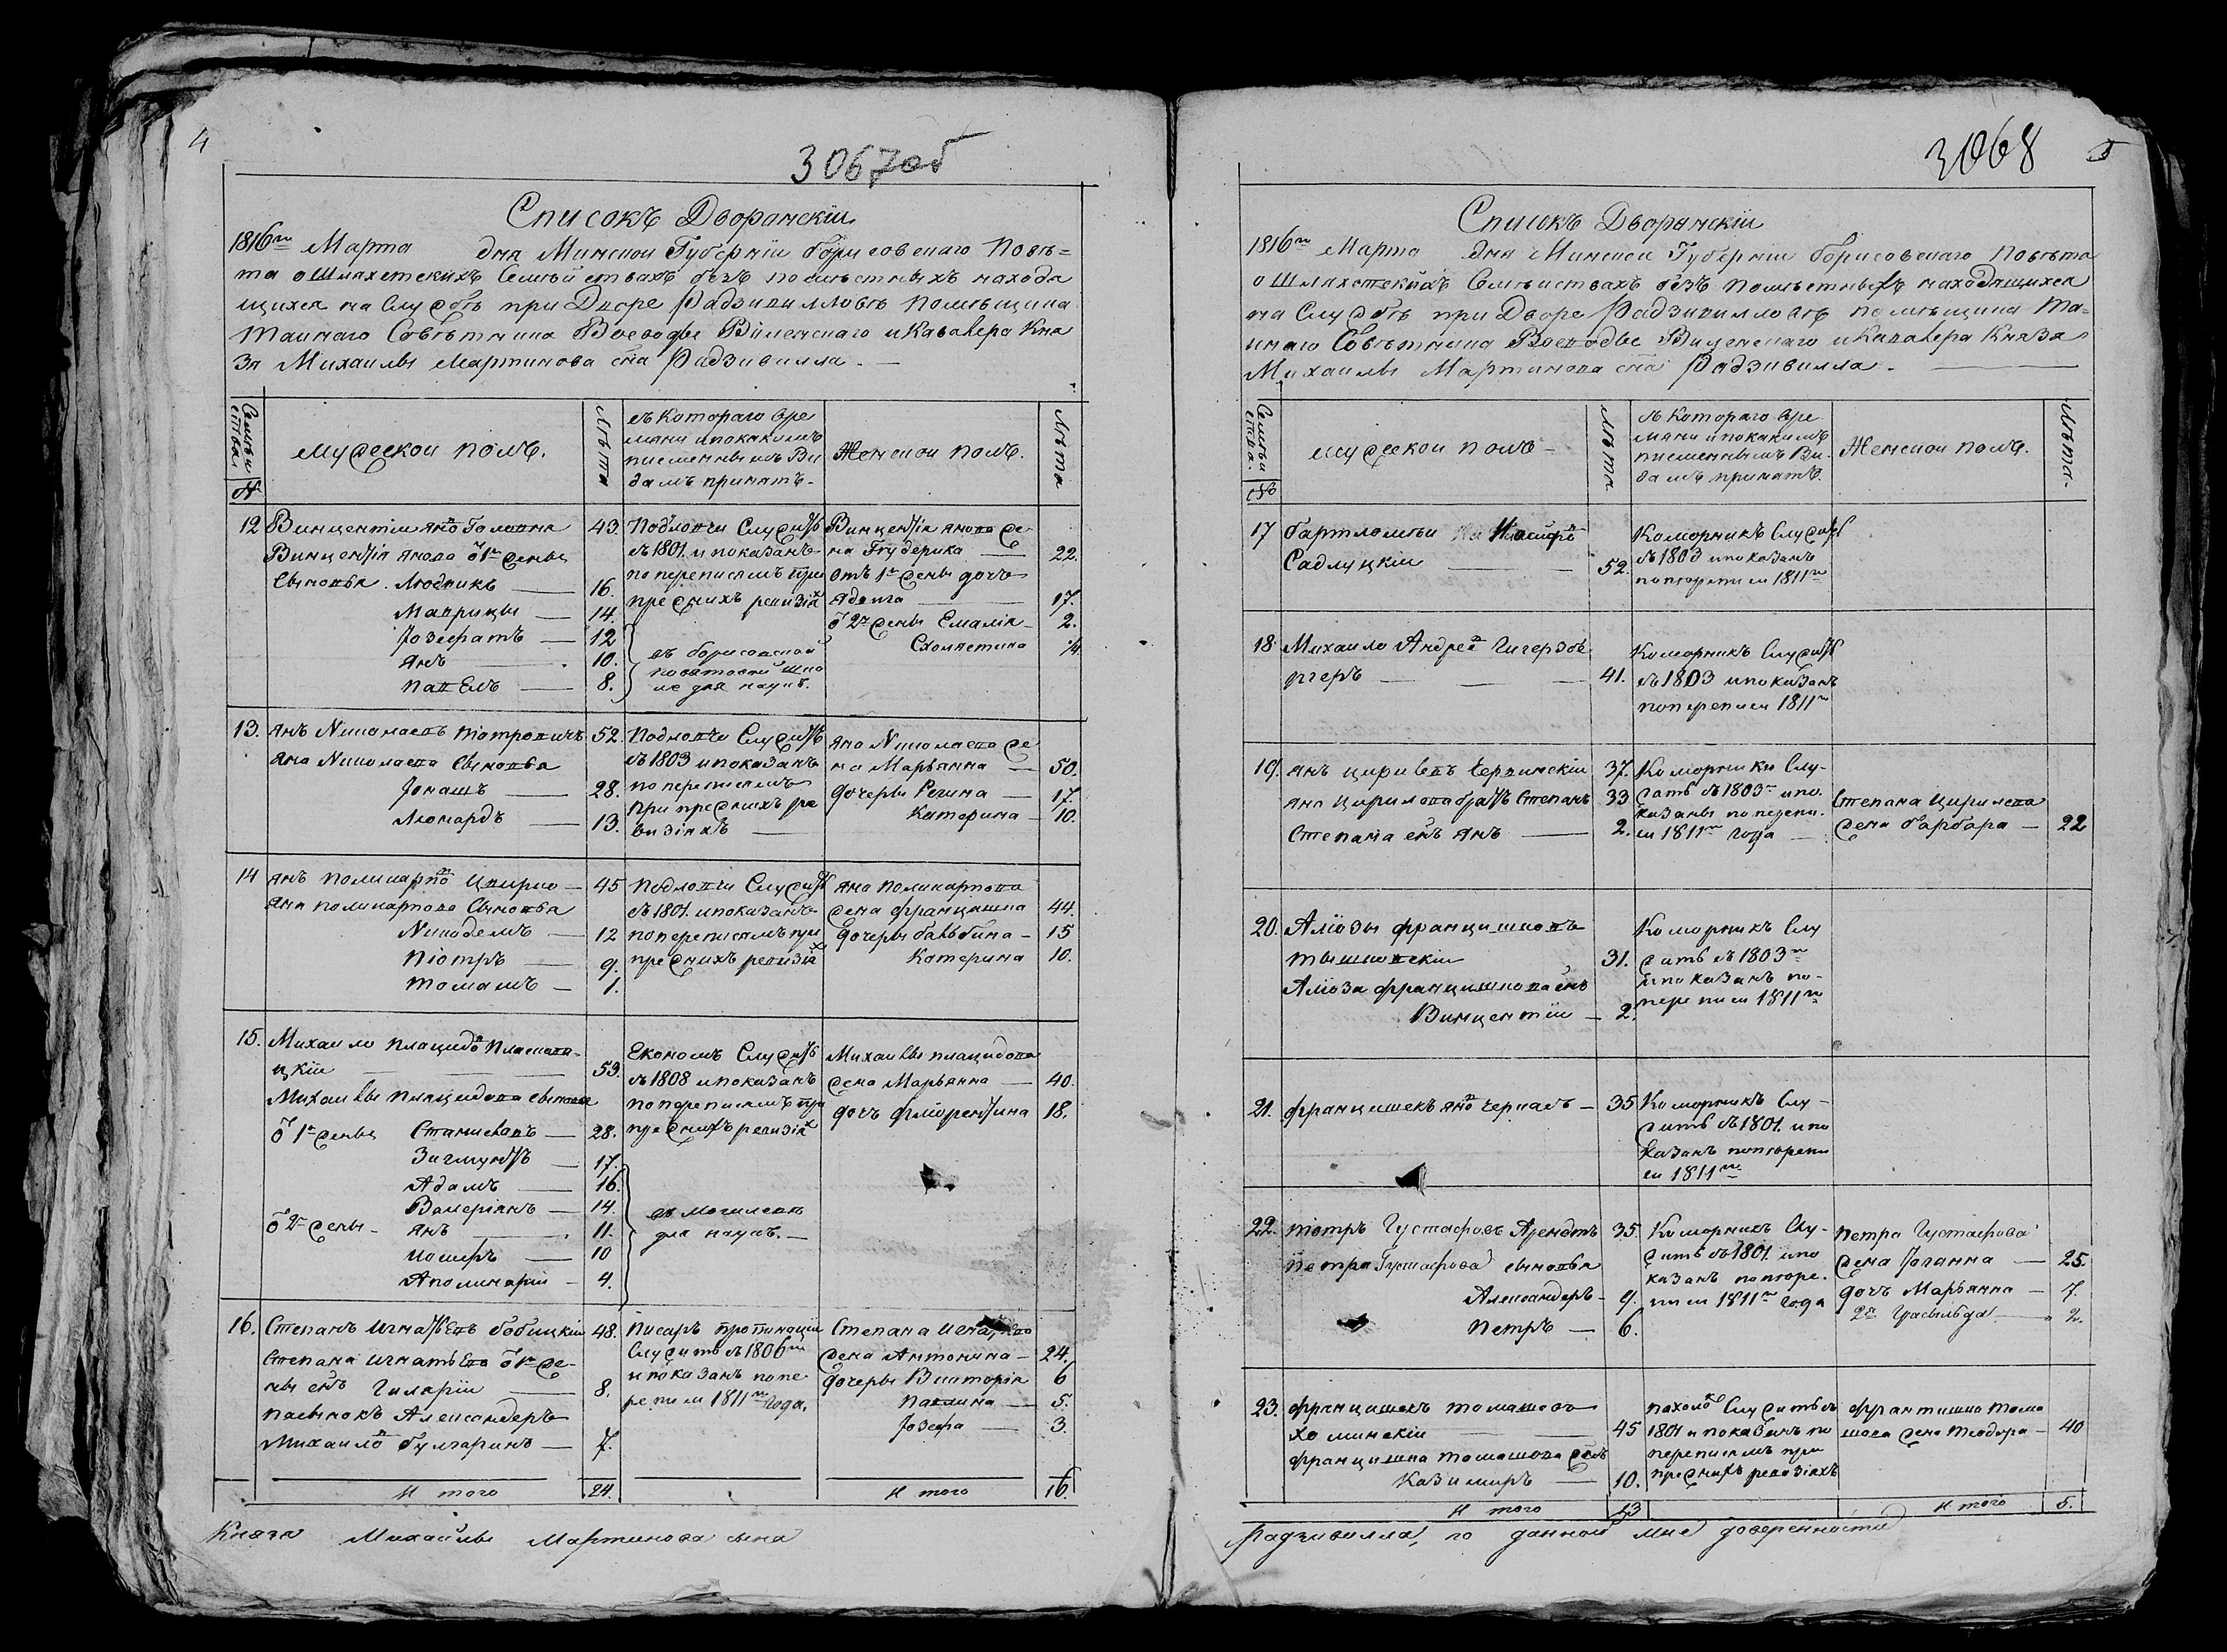 4
3067об
Списокъ Дворянскіи
1816го Марта дня Минской Губерніи Борисовскаго Повѣ=
та о Шляхетскихъ Семѣйствахъ безъ помѣстныхъ находя
щихся на Службѣ при Дворе Радзивилловѣ помѣщика
Таинаго Совѣтника Воеводы Виленскаго и Кавалера Кня
зя Михаилы Мартинова сна Радзивилла. —
Семѣи ства №
мужеской полъ.
Лѣта
съ Котораго вре
мяни и покакимъ
писменнымъ Ви
дамъ принятъ.
Женской полъ.
Лѣта
12 Винцентіи Яновъ Головня 43.
Винцентія Янова от 1й жены
Сыновья. Людвикъ — 16.
Маврицы — 14.
Іозефатъ — 12
Янъ — 10.
Павелъ — 8.
Подловчи Служитъ
съ 1801. и показанъ
по переписямъ при
прежнихъ ревизіях
въ борисовской
поветовой шко
ле для наукъ.
Винцентія Янова же
на Фрудерика — 22.
отъ 1й жены дочь
Ядвига 17.
от 2й жены Емалія — 2.
Схоластика ¼
13. Янъ Николаевъ Піотровичъ 52.
Яна Николаева Сыновья
Іонашъ — 28.
Леонардъ — 13.
Подловчи Служитъ
съ 1803 и показанъ
по переписямъ
при прежнихъ ре
визіяхъ —
Яна Николаева же
на Марьянна — 50.
дочери Регина — 17.
Катерина — 10.
14 Янъ Поликарповъ Цвирко — 45
Яна Поликарпова Сыновья
Никодемъ — 12
Піотръ — 9.
Томашъ — 1.
Подловчи Служитъ
съ 1801. и показанъ
по переписямъ при
прежнихъ ревизіях
Яна Поликарпова
жена Францишка 44.
дочери Бальбина — 15
Катерина 10.
15. Михаило Плацидовъ Пласкова
цкіи 53.
Михаилы Плацидова сыновья
от 1й жены Станиславъ — 28.
Зигмунтъ — 17.
Адамъ — 16.
Валеріянъ — 14.
от 2й жены — Янъ 11.
Аполинарій — 4.
Економъ Служитъ
съ 1808 и показанъ
по переписямъ при
прежнихъ ревизіях
въ Могилеве
для наукъ. —
Михаилы Плацидова
жена Марьянна — 40.
дочь Флорентина 18.
16. Степанъ Игнатьевъ Бобицкіи 48.
Степана Игнатьева от 1й же-
ны снъ Гиларіи — 8.
пасынокъ Александеръ
Михаиловъ Булгаринъ — 7.
Писарь пропинаціи
Служитъ съ 1806го
и показанъ попе
реписи 1811го года.
Степана Игнатьева
жена Антонина — 24.
дочери Викторія 6
Павлина — 5.
Іозефа — 3.
И того 24. И того 16.
Князя Михайлы Мартинова сына
3068 5
Списокъ Дворянскіи
1816го Марта дня Минской Губерніи Борисовскаго Повѣта
о Шляхетскихъ Семѣиствахъ безъ помѣстныхъ находящихся
на Службѣ при Дворе Радзивилловѣ помѣщика Та=
инаго Совѣтника Воеводы Виленскаго и Кавалера Князя
Михаилы Мартинова сна Радзивилла. —
Семѣи ства. №
мужеской полъ —
Лѣта
съ Котораго вре
мяни и покакимъ
писменнымъ Ви-
дамъ принятъ.
Женской полъ.
Лѣта.
17 Бартломѣи
Садлуцкіи — 52.
Коморникъ Служитъ
съ 1803 и показанъ
по переписи 1811го
18. Михаило Андреев
41.
Коморникъ Служитъ
съ 1803 и показанъ
по переписи 1811го
19. Янъ Цириловъ Червинскіи 37.
Яна Цирилова братъ Степанъ 33
Степана снъ Янъ — 2.
Коморники Слу-
жатъ съ 1803го и по.
казаны по перепи.
си 1811го года —
Степана Цирилова
жена Барбара — 22
20. Алоизы Францишковъ
Тышковскіи 31.
Алоиза Францишкова снъ
Винцентіи — 2.
Коморникъ Слу
житъ съ 1803го
и показанъ по-
переписи 1811го
21. Францишекъ Яновъ Чернасъ — 35
Коморникъ Слу-
житъ съ 1801. и по
казанъ по перепи
си 1811го
22. Піотръ Густафовъ Арендтъ 35.
Петра Густафова сыновья
Александеръ — 9.
Петръ — 6.
Коморникъ Слу-
житъ съ 1801. и по
казанъ попере.
писи 1811го года
Петра Густафова
жена Іоганна — 25.
дочь Марьянна — 7.
2я — 2.
23. Францишекъ Томашовъ
Хоминскіи 45
Францишка Томашова снъ
Казимиръ — 10.
Служитъ съ
1801 и показанъ по
переписямъ при
прежнихъ ревизіяхъ
Францишка Тома
шова жена Теодора — 40
И того 13 И того 5.
Радзивилла, по данной мне доверенности